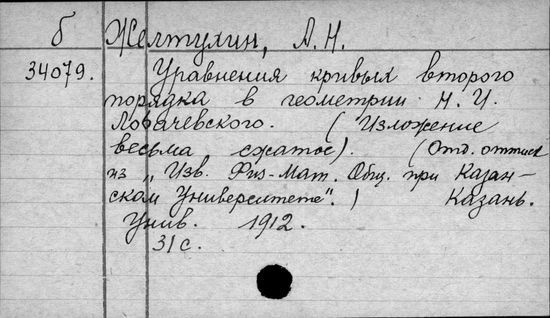 б Желтухин, А. Н.
34079. Уравнения кривых второго
порядка в геометрии Н. И.
Лобачевского. (Изложение
весьма сжатое). (Отд. оттиск
из „Изв. Физ-Мат. Общ. при Казан-
ском Университете".) Казань.
Унив. 1912.
31 с.